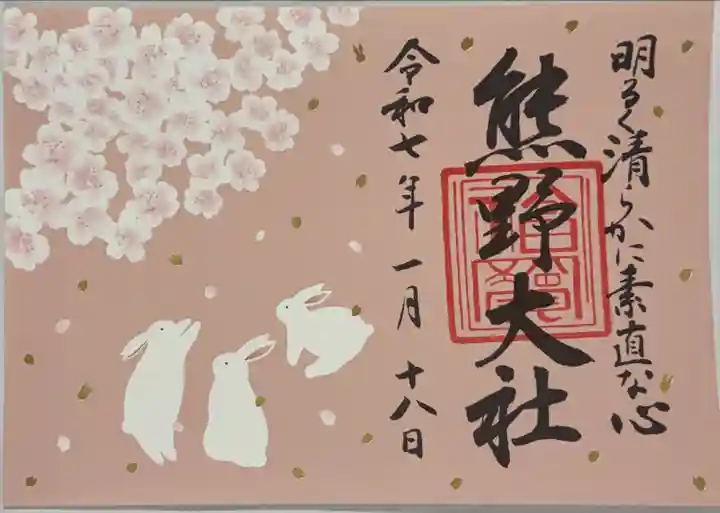 明るく清らかに素直な心
熊野大社
令和七年一月十八日